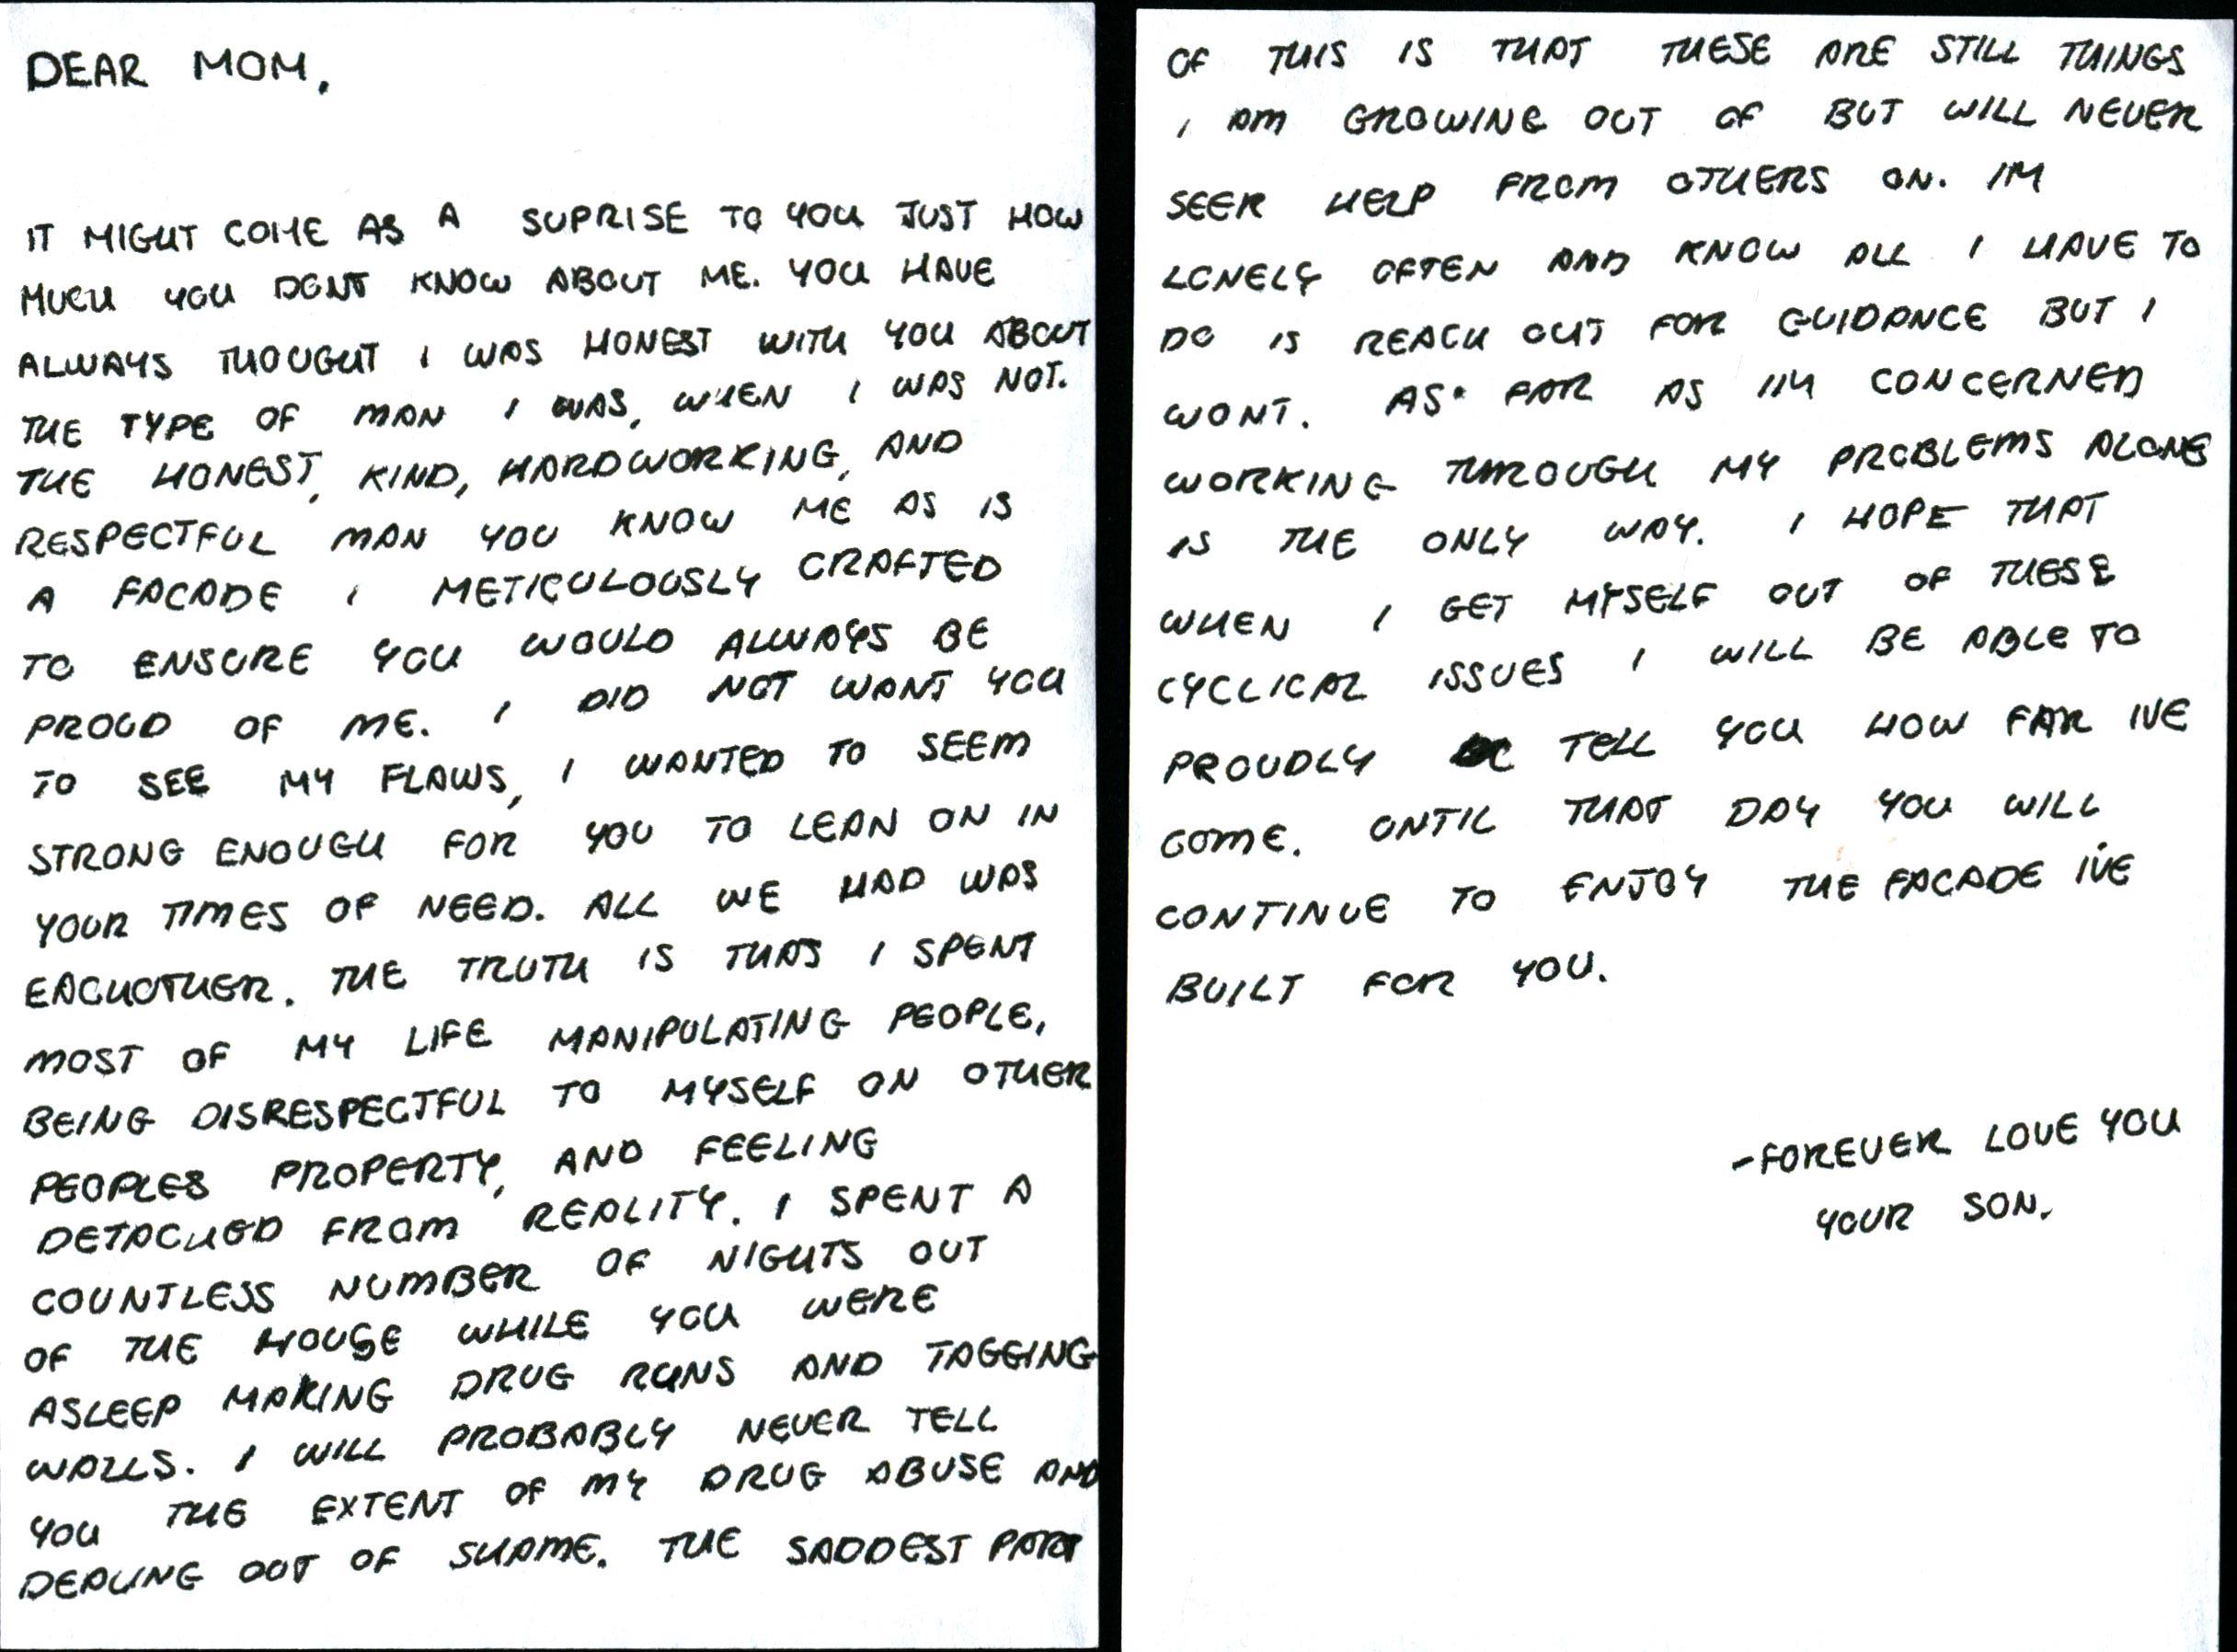 DEAR MOM,
IT MIGHT COME AS A SUPRISE TO YOU JUST HOW
MUCH YOU DONT KNOW ABOUT ME. YOU HAVE
ALWAYS THOUGHT I WAS HONEST WITH YOU ABOUT
THE TYPE OF MAN I WAS, WHEN I WAS NOT.
THE HONEST, KIND, HARDWORKING, AND
RESPECTFUL MAN YOU KNOW ME AS IS
A FACADE I METICULOUSLY CRAFTED
TO ENSURE YOU WOULD ALWAYS BE
PROUD OF ME. I DID NOT WANT YOU
TO SEE MY FLAWS, I WANTED TO SEEM
STRONG ENOUGH FOR YOU TO LEAN ON IN
YOUR TIMES OF NEED. ALL WE HAD WAS
EACHOTHER. THE TRUTH IS THAT I SPENT
MOST OF MY LIFE MANIPULATING PEOPLE,
BEING DISRESPECTFUL TO MYSELF ON OTHER
PEOPLES PROPERTY, AND FEELING
DETACHED FROM REALITY. I SPENT A
COUNTLESS NUMBER OF NIGHTS OUT
OF THE HOUSE WHILE YOU WERE
ASLEEP MAKING DRUG RUNS AND TAGGING
WALLS. I WILL PROBABLY NEVER TELL
YOU THE EXTENT OF MY DRUG ABUSE AND
DEALING OUT OF SHAME. THE SADDEST PART
OF THIS IS THAT THESE ARE STILL THINGS
I AM GROWING OUT OF BUT WILL NEVER
SEEK HELP FROM OTHERS ON. IM
LONELY OFTEN AND KNOW ALL I HAVE TO
DO IS REACH OUT FOR GUIDANCE BUT I
WONT. AS FAR AS IM CONCERNED
WORKING THROUGH MY PROBLEMS ALONE
IS THE ONLY WAY. I HOPE THAT
WHEN I GET MYSELF OUT OF THESE
CYCLICAL ISSUES I WILL BE ABLE TO
PROUDLY TELL YOU HOW FAR IVE
COME. UNTIL THAT DAY YOU WILL
CONTINUE TO ENJOY THE FACADE I'VE
BUILT FOR YOU.
-FOREVER LOVE YOU
YOUR SON.